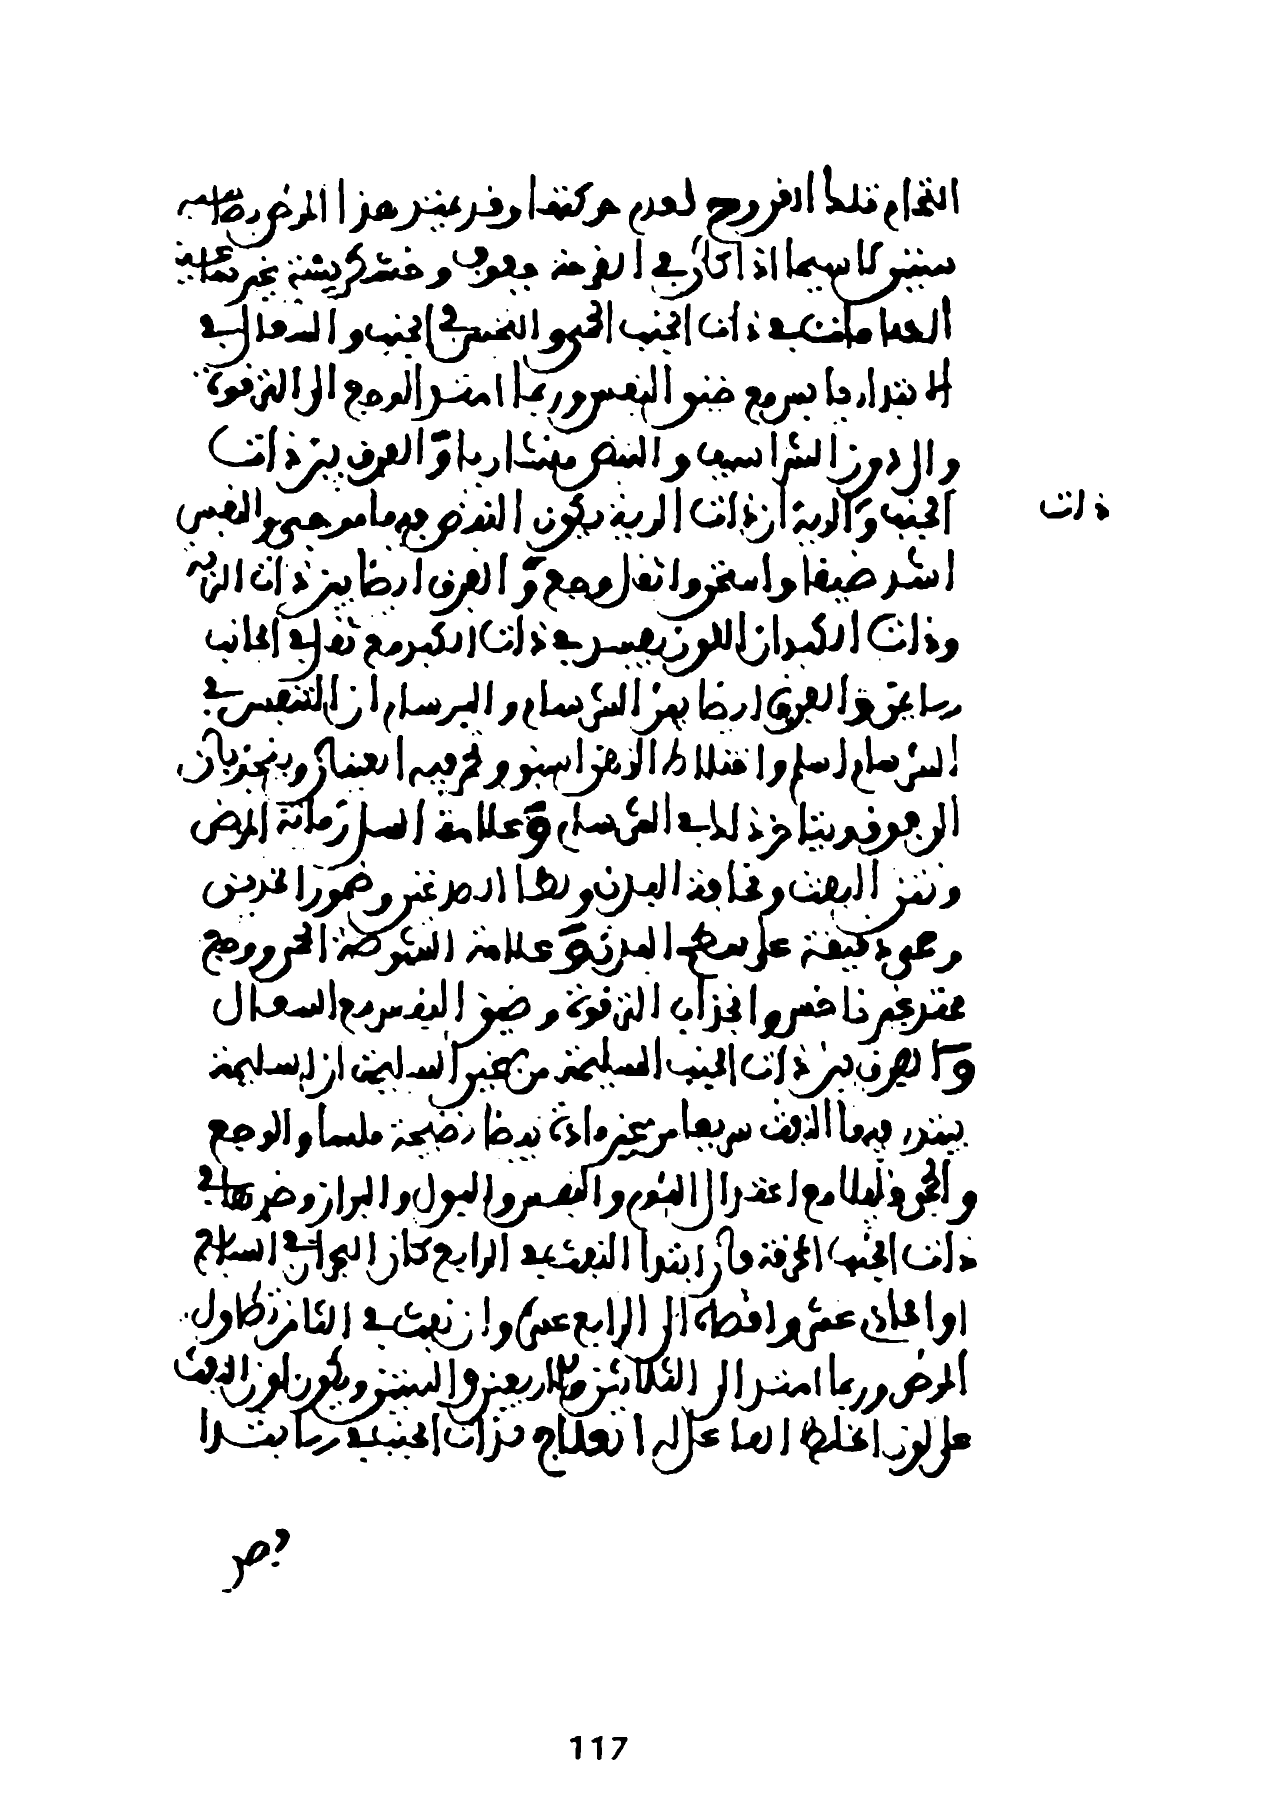 التحام تلك القروح لعدم حركتها وقد يمتد هذا المرض بصاحبه
سنين لا سيما اذا كان في القرحة وخشكريشة
العلامات في ذات الجنب الحمى والنخس في الجنب والسعال في
الابتداء يابس مع ضيق النفس وربما امتد الوجع الى الترقوة
والى دون الشراسيف والنبض منشاريا والفرق بين ذات
الجنب والرية ان ذات الرية يكون النبض فيها موجي والنفس
اشد ضيقا واسخن والثقل وجع والفرق ايضا بين ذات الرية
وذات الكبد ان اللون يفسد في ذات الكبد مع ثقل في الجانب
الايمن والفرق ايضا بين السرسام والبرسام ان التنفس في
السرسام اسلم واختلاط الذهن اسبق وتحمر فيه العينان وينجذبان
الى فوق ويتاخر ذلك في البرسام وعلامة السل زمانة المرض
ونتن النفث ونحافة البدن ولطا الاصداغين وضمور الخدين
على سطح البدن وعلامة الشوصة الحمى ووجع
ممتد غير ناخس وانجذاب الترقوة وضيق النفس مع السعال
والفرق بين ذات الجنب السليمة من غير السليمة ان السليمة
يبتدي فيها النفث سريعا من غير ماذة بيضا نضيجة ملسا والوجع
والحمى قليلا مع اعتدال النوم والنفس والبول والبراز وضدها في
ذات الجنب المحرقة فان ابتدا النفث في الرابع كان البحران في السابع
او الحادي عشر واقصاه الى الرابع عشر وان نفث في الثامن تطاول
المرض وربما امتد الى الثلاثين والاربعين والستين ويكون لون النفث
على لون الخلط الفاعل له العلاج ذات الجنب يبتدا
ذات
بفصد
117